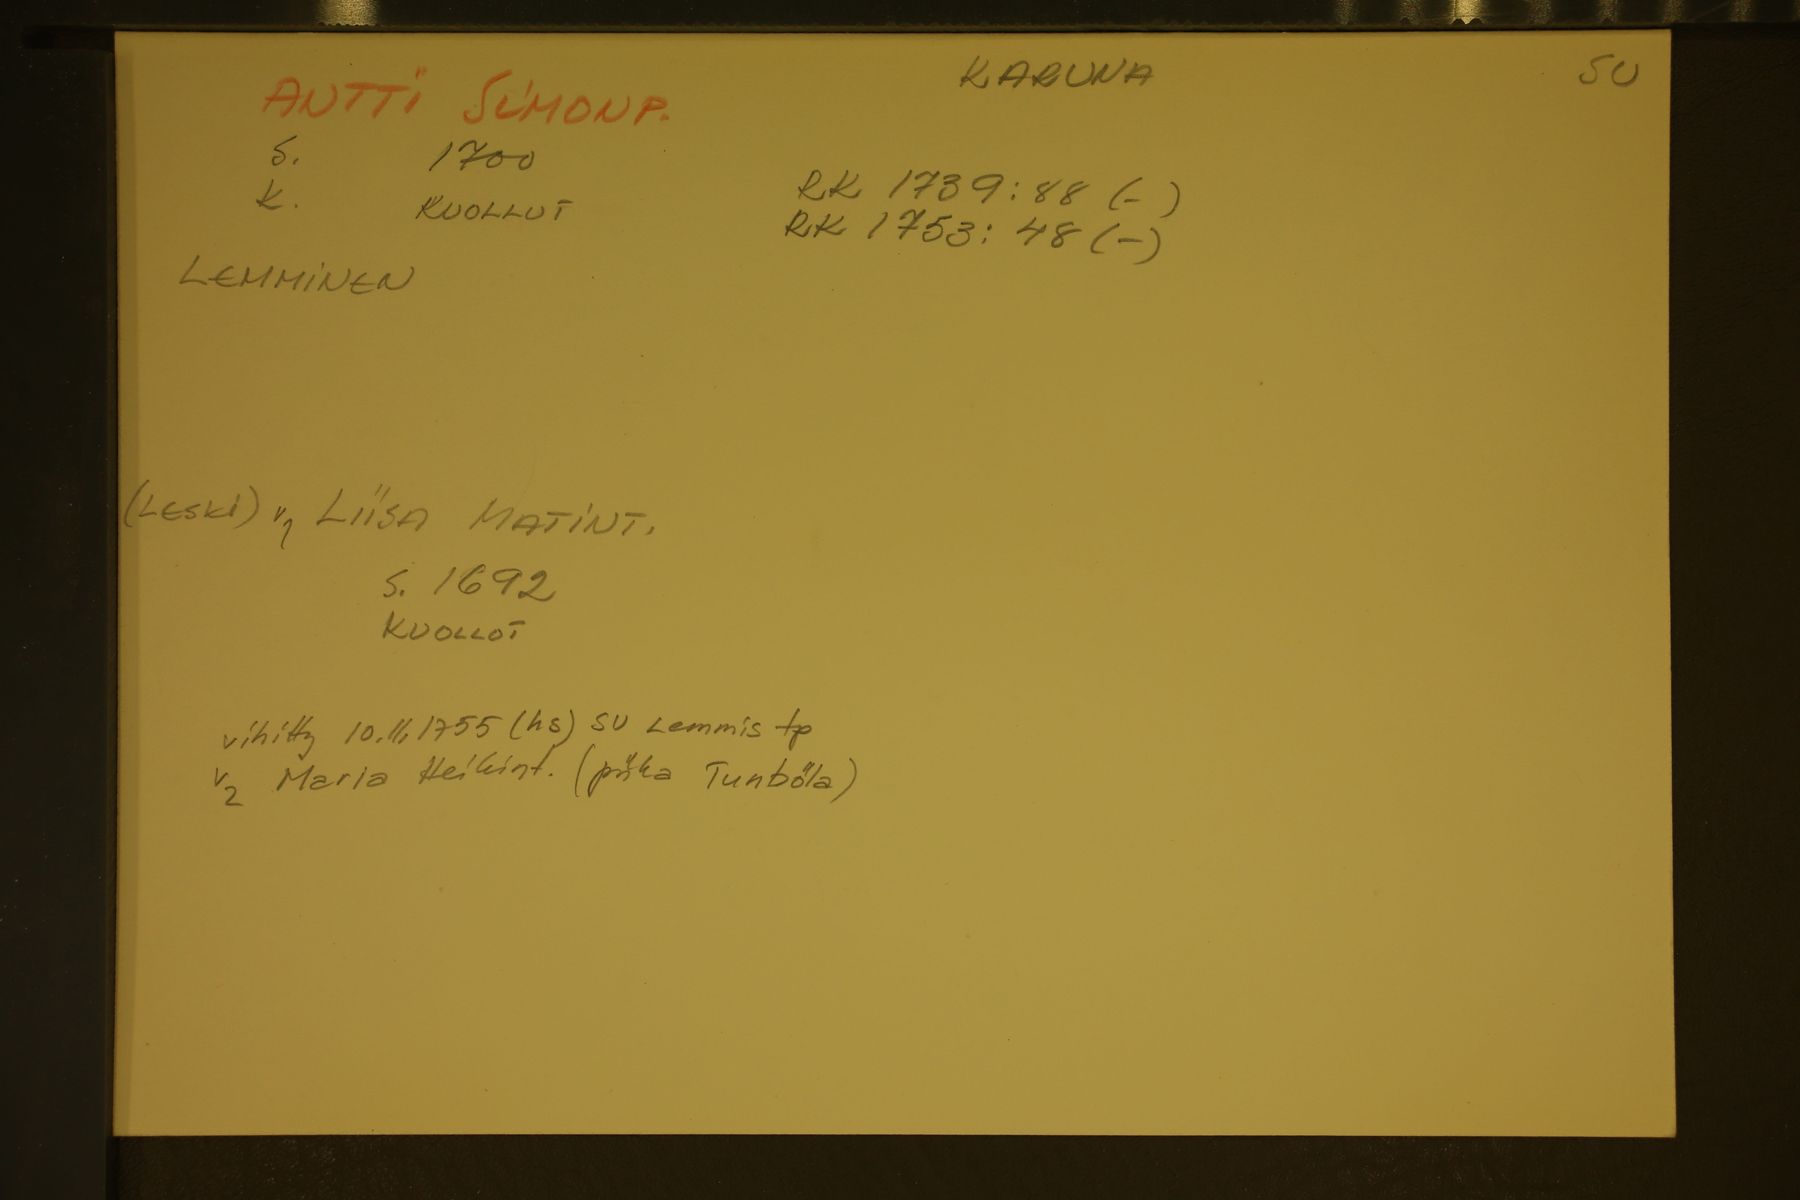 KARUNA SU
ANTTI SIMONP.
S. 1700
K. KUOLLUT
RK 1739:88 (- )
RK 1753: 48 (-)
LEMMINEN
(LESKI) v1 LIISA MATINT.
S. 1692
KUOLLUT
vihitty 10.11.1755 (hs) SU Lemmis tp
v2 Maria Heikint. (piika Tunböla)